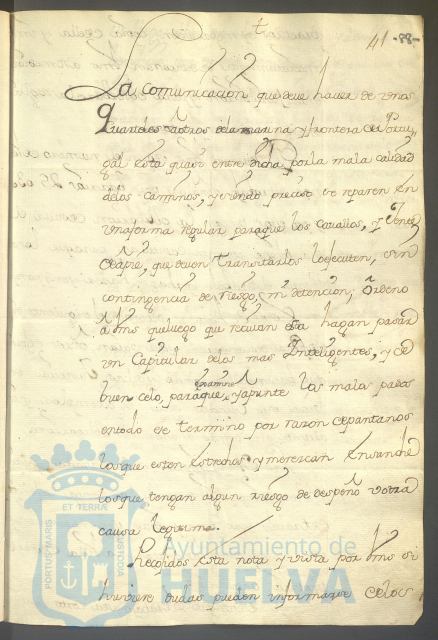 41 -88-
La comunicacion que deve haver de unos
Quarteles a otros dela marina y frontera de Portu,,
gal esta quasi entre dicha por la mala calidad
delos caminos, y siendo preciso se reparen en
una forma regular para que los cavallos, y Gente
de apie, que devan transitarlos lo executen, sin
contingencia de riesgo, ni detencion; Ordeno
a Vms que luego que recivan esta hagan pasar
un Capitular delos mas Inteligentes, y de
buen celo, para que examine y apunte los malos pasos
en todo ese termino por razon de pantanos
los que esten estrechos y merezcan ensanche
los que tengan algun riesgo de despeño u otra
causa legitima.
Recojidos esta nota y vista por Vms si
huviere dudas pueden informarse delos
PORTUS MARIS
ET TERRÆ
CUSTODIA
Ayuntamiento de
HUELVA